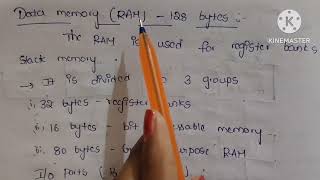 Data memory (RAM) - 128 bytes :-
The RAM is used for register banks
stack memory.
→ It is divided into 3 groups
i. 32 bytes - register banks
ii. 16 bytes - bit addressable memory
iii. 80 bytes - general purpose RAM
I/O ports (
KINEMASTER